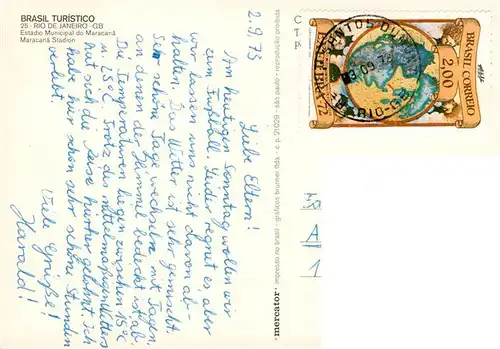 BRASIL TURÍSTICO
25 - RIO DE JANEIRO - GB
Estádio Municipal do Maracanã
Maracanã Stadion
2.9.73
Liebe Eltern!
Am heutigen Sonntag wollen wir
zum Fußball. Leider regnet es, aber
wir lassen uns nicht davon ab-
halten. Das Wetter ist sehr gemischt
Sehr schöne Tage wechseln mit Tagen,
an denen der Himmel bedeckt ist ab.
Die Temperaturen liegen zwischen 15°C
u. 25°C. Trotz des mittelmäßigen Wetters
hat sich die Reise hierher gelohnt. Ich
habe hier schon sehr schöne Stunden
verlebt.
Viele Grüße!
Harald!
mercator - impresso no brasil - gráficos brunner ltda. - c. p. 21029 - são paulo - reprodução proibida
C
T
P
BRASIL CORREIO
2,00
03.09.73
38
A
1